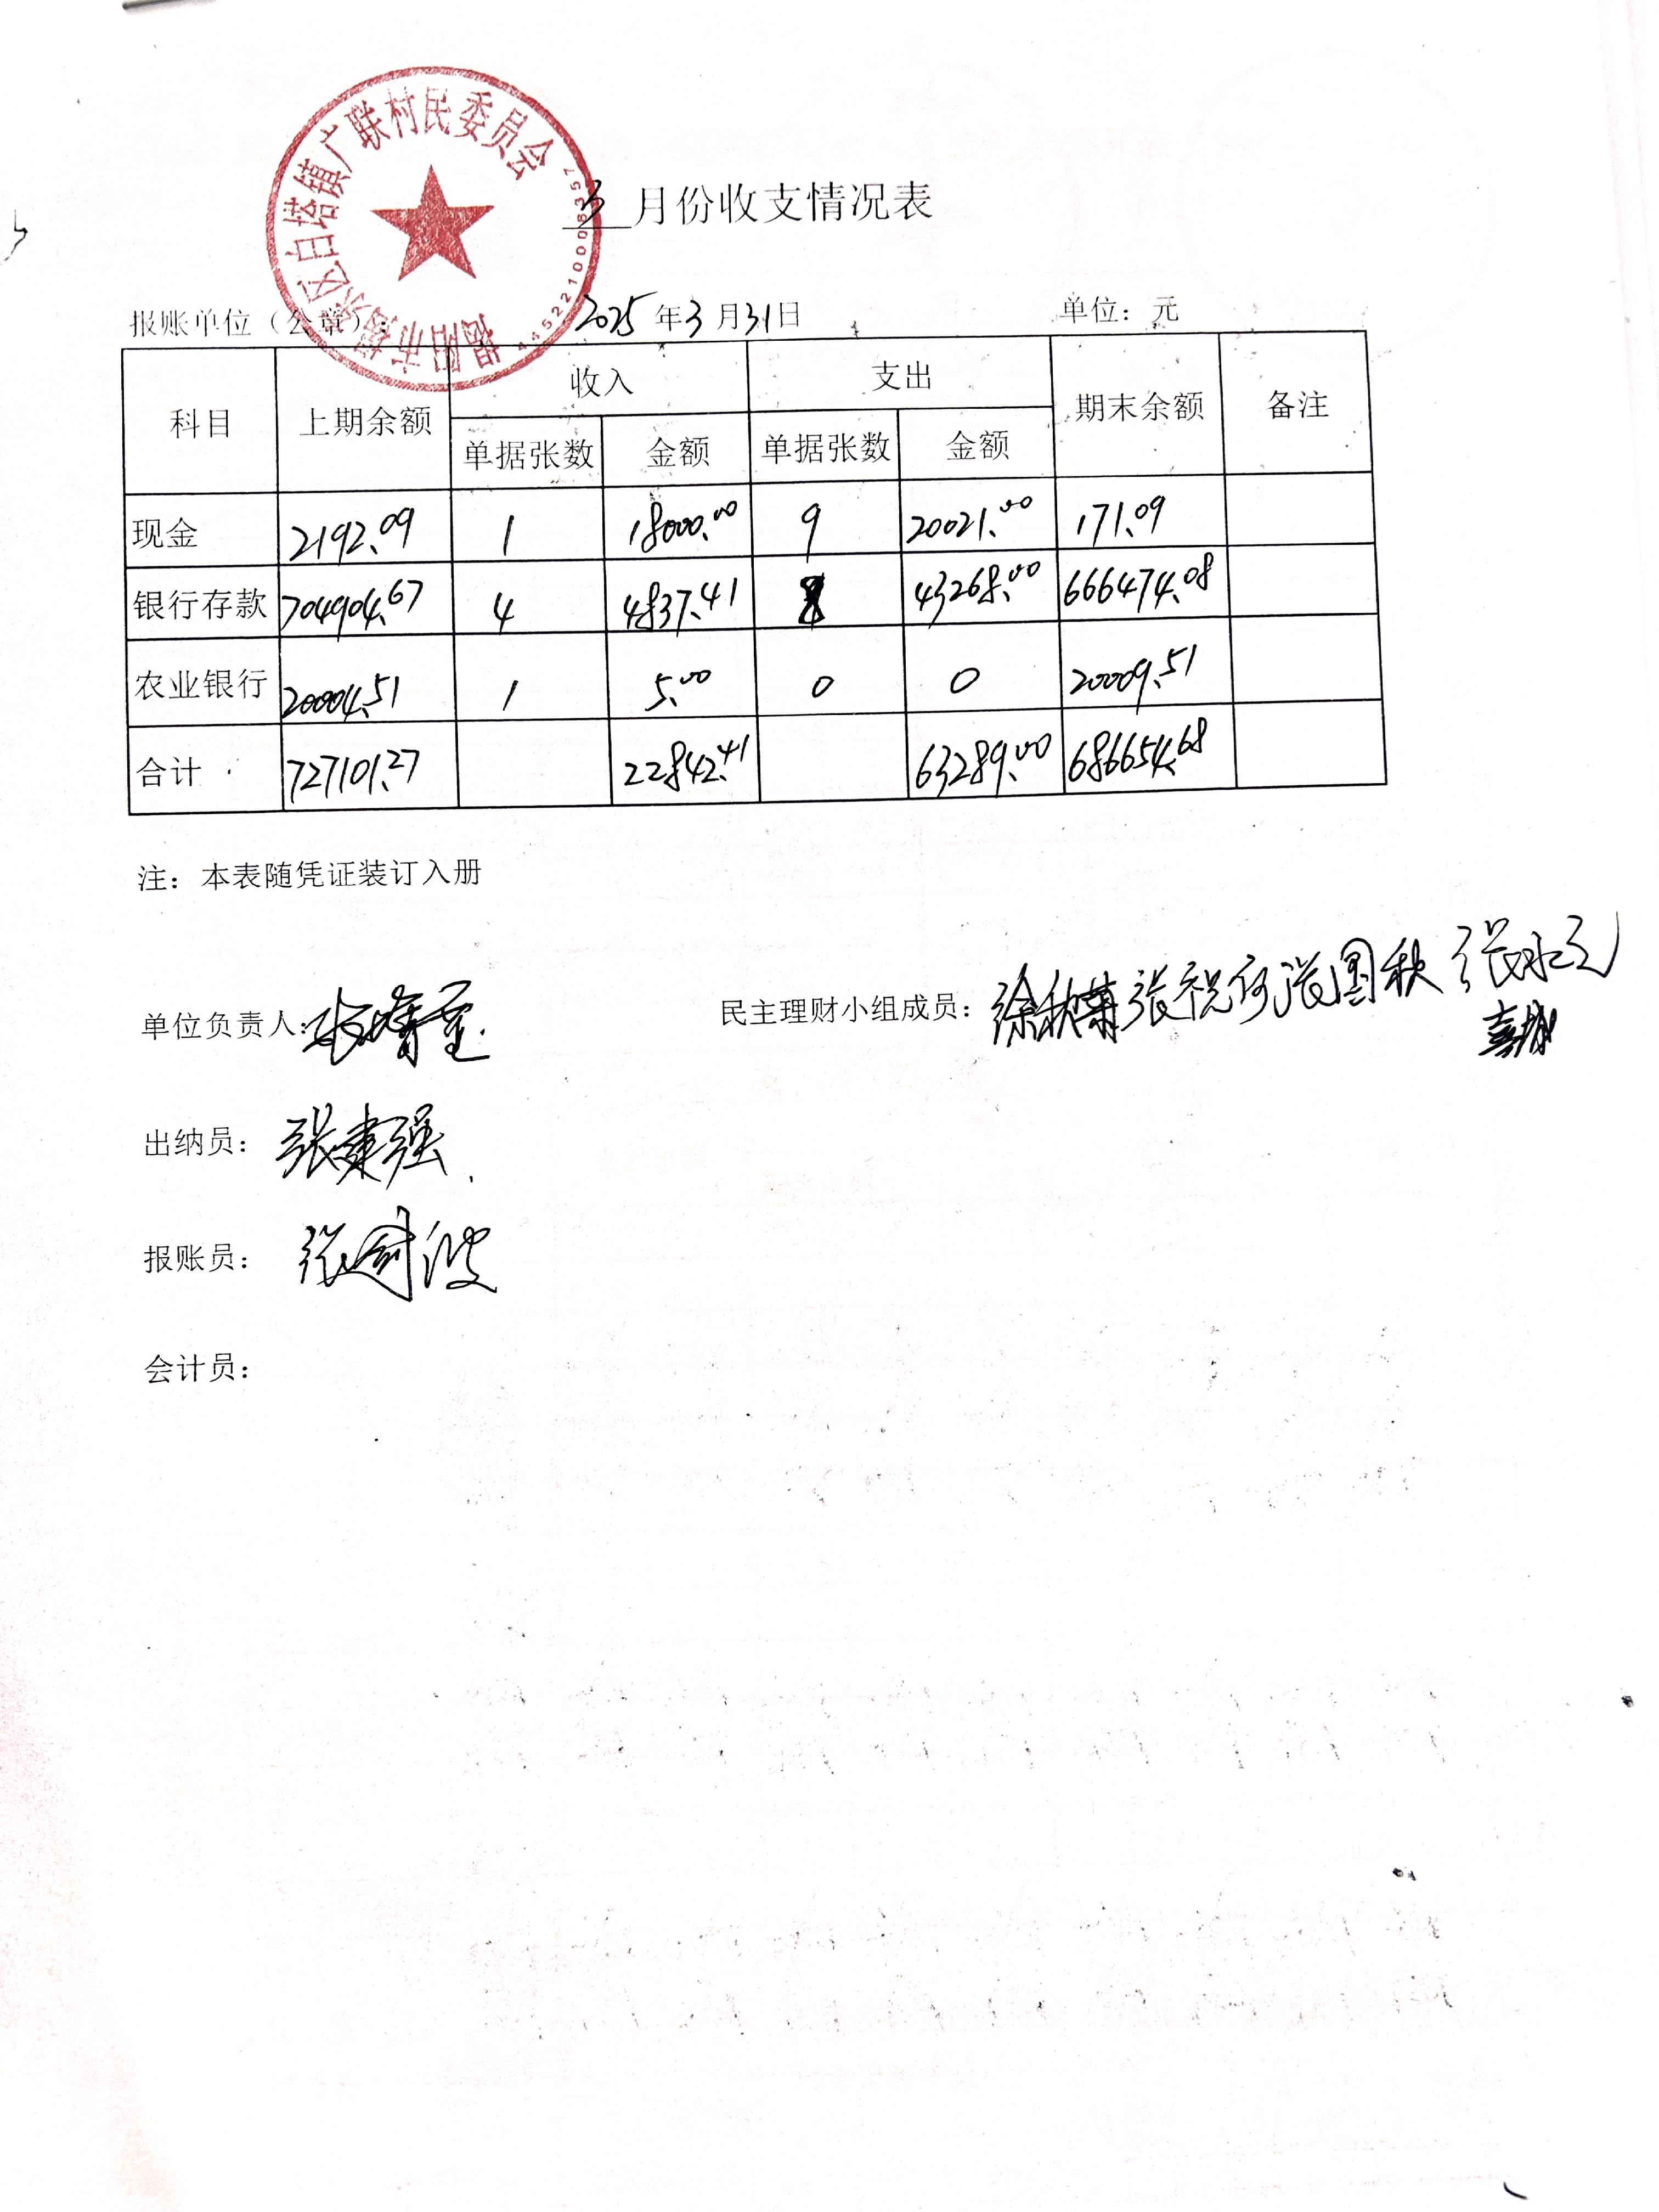 揭阳市揭东区白塔镇广联村民委员会
4452210008357
3 月份收支情况表
报账单位（公章）： 2025 年 3 月 31 日 单位：元
科目 上期余额 收入 支出 期末余额 备注
单据张数 金额 单据张数 金额
现金 2192.09 1 18000.00 9 20021.00 171.09
银行存款 704904.67 4 4837.41 43268.00 666474.08
农业银行 20004.51 1 5.00 0 0 20009.51
合计 727101.27 22842.41 63289.00 686654.68
注：本表随凭证装订入册
单位负责人： 民主理财小组成员： 徐秋菊 张祝何 张国秋 张永元
出纳员： 张建强
报账员： 张剑波
会计员：